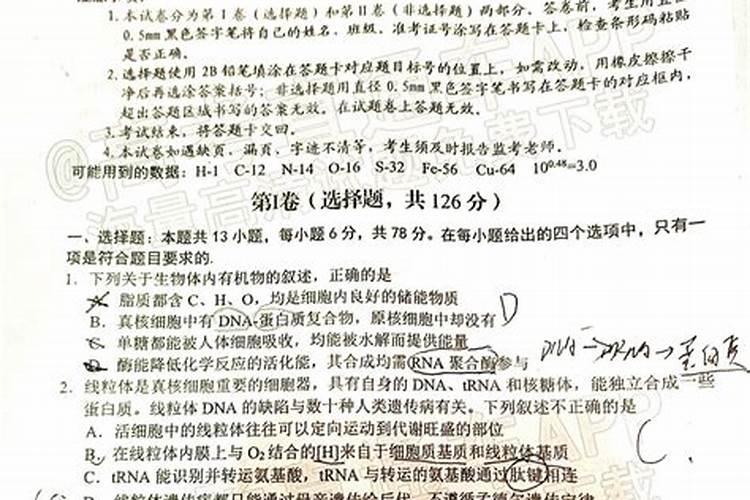 1. 本试卷分为第Ⅰ卷（选择题）和第Ⅱ卷（非选择题）两部分。答卷前，考生用直径
0.5mm黑色签字笔将自己的姓名、班级、准考证号涂写在答题卡上，检查条形码粘贴
是否正确。
2. 选择题使用2B铅笔填涂在答题卡对应题目标号的位置上，如需改动，用橡皮擦擦干
净后再选涂答案括号；非选择题用直径0.5mm黑色签字笔书写在答题卡的对应框内，
超出答题区域书写的答案无效，在试题卷上答题无效。
3. 考试结束，将答题卡交回。
4. 本试卷如遇缺页、漏页、字迹不清等，考生须及时报告监考老师。
可能用到的数据：H-1 C-12 N-14 O-16 S-32 Fe-56 Cu-64 10^0.48=3.0
第Ⅰ卷（选择题，共126分）
一、选择题：本题共13小题，每小题6分，共78分。在每小题给出的四个选项中，只有一
项是符合题目要求的.
1. 下列关于生物体内有机物的叙述，正确的是
A. 脂质都含C、H、O，均是细胞内良好的储能物质 D
B. 真核细胞中有DNA-蛋白质复合物，原核细胞中却没有
C. 单糖都能被人体细胞吸收，均能被水解而提供能量
D. 酶能降低化学反应的活化能，其合成均需RNA聚合酶参与 DNA→RNA→蛋白质
2. 线粒体是真核细胞重要的细胞器，具有自身的DNA、tRNA和核糖体，能独立合成一些
蛋白质。线粒体DNA的缺陷与数十种人类遗传病有关。下列叙述不正确的是
A. 活细胞中的线粒体往往可以定向运动到代谢旺盛的部位
B. 在线粒体内膜上与O₂结合的[H]来自于细胞质基质和线粒体基质 C
C. tRNA能识别并转运氨基酸，tRNA与转运的氨基酸通过肽键相连